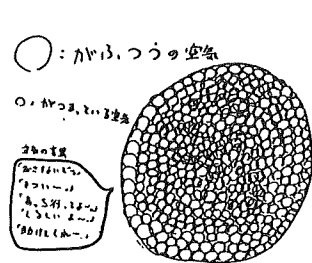 ○：がふつうの空気
○：がつまっている空気
空気の言葉
「おさないで〜」
「きつい〜。」
「あっち行ってよ〜。」
「くるしいよ〜。」
「助けてくれー。」